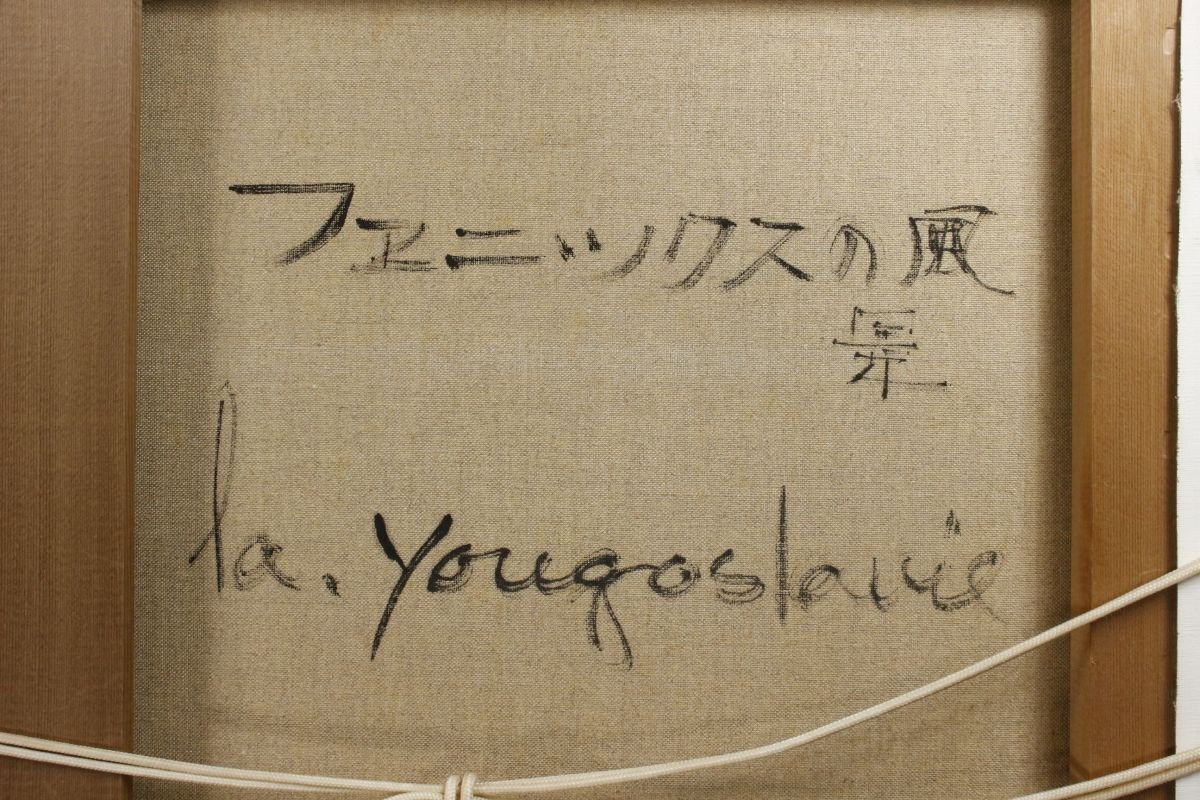 フヱニックスの風
景
la. Yougoslavie